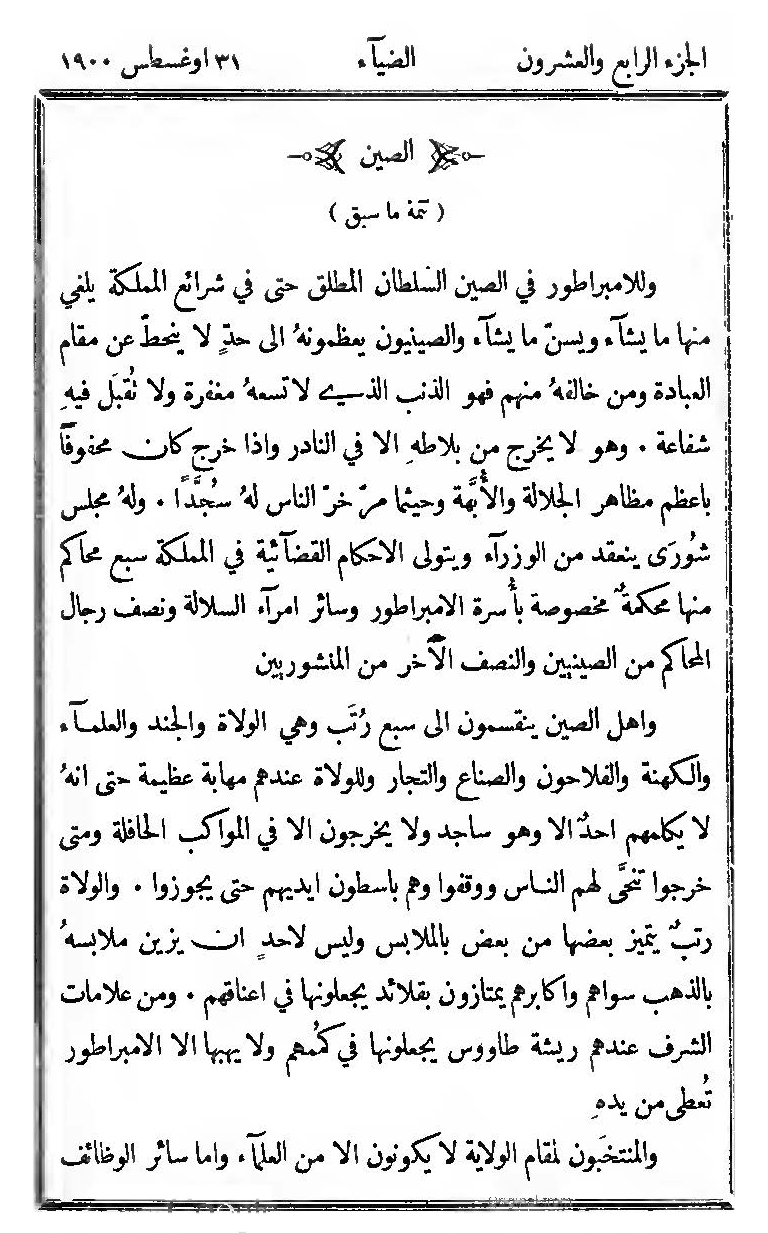 الجزء الرابع والعشرون الضيآء ٣١ اوغسطس ١٩٠٠
الصين
( تتمة ما سبق )
وللامبراطور في الصين السلطان المطلق حتى في شرائع المملكة يلغي
منها ما يشآء ويسنّ ما يشآء والصينيون يعظمونهُ الى حدٍّ لا ينحطّ عن مقام
العبادة ومن خالفهُ منهم فهو الذنب الذي لا تسعهُ مغفرة ولا تُقبَل فيهِ
شفاعة ٠ وهو لا يخرج من بلاطهِ الا في النادر واذا خرج كان محفوفًا
باعظم مظاهر الجلالة والأُبَّهة وحيثما مرّ خرّ الناس لهُ سُجَّدًا ٠ ولهُ مجلس
شُورَى ينعقد من الوزرآء ويتولى الاحكام القضآئية في المملكة سبع محاكم
منها محكمةٌ مخصوصة بأُسرة الامبراطور وسائر امرآء السلالة ونصف رجال
المحاكم من الصينيين والنصف الآخر من المنشوريين
واهل الصين ينقسمون الى سبع رُتَب وهي الولاة والجند والعلمآء
والكهنة والفلاحون والصناع والتجار وللولاة عندهم مهابة عظيمة حتى انهُ
لا يكلمهم احدٌ الا وهو ساجد ولا يخرجون الا في المواكب الحافلة ومتى
خرجوا تنحَّى لهم الناس ووقفوا وهم باسطون ايديهم حتى يجوزوا ٠ والولاة
رتبٌ يتميز بعضها من بعض بالملابس وليس لاحدٍ ان يزين ملابسهُ
بالذهب سواهم واكابرهم يمتازون بقلائد يجعلونها في اعناقهم ٠ ومن علامات
الشرف عندهم ريشة طاووس يجعلونها في كُممهم ولا يهبها الا الامبراطور
تُعطى من يدهِ
والمنتخَبون لمقام الولاية لا يكونون الا من العلمآء واما سائر الوظائف